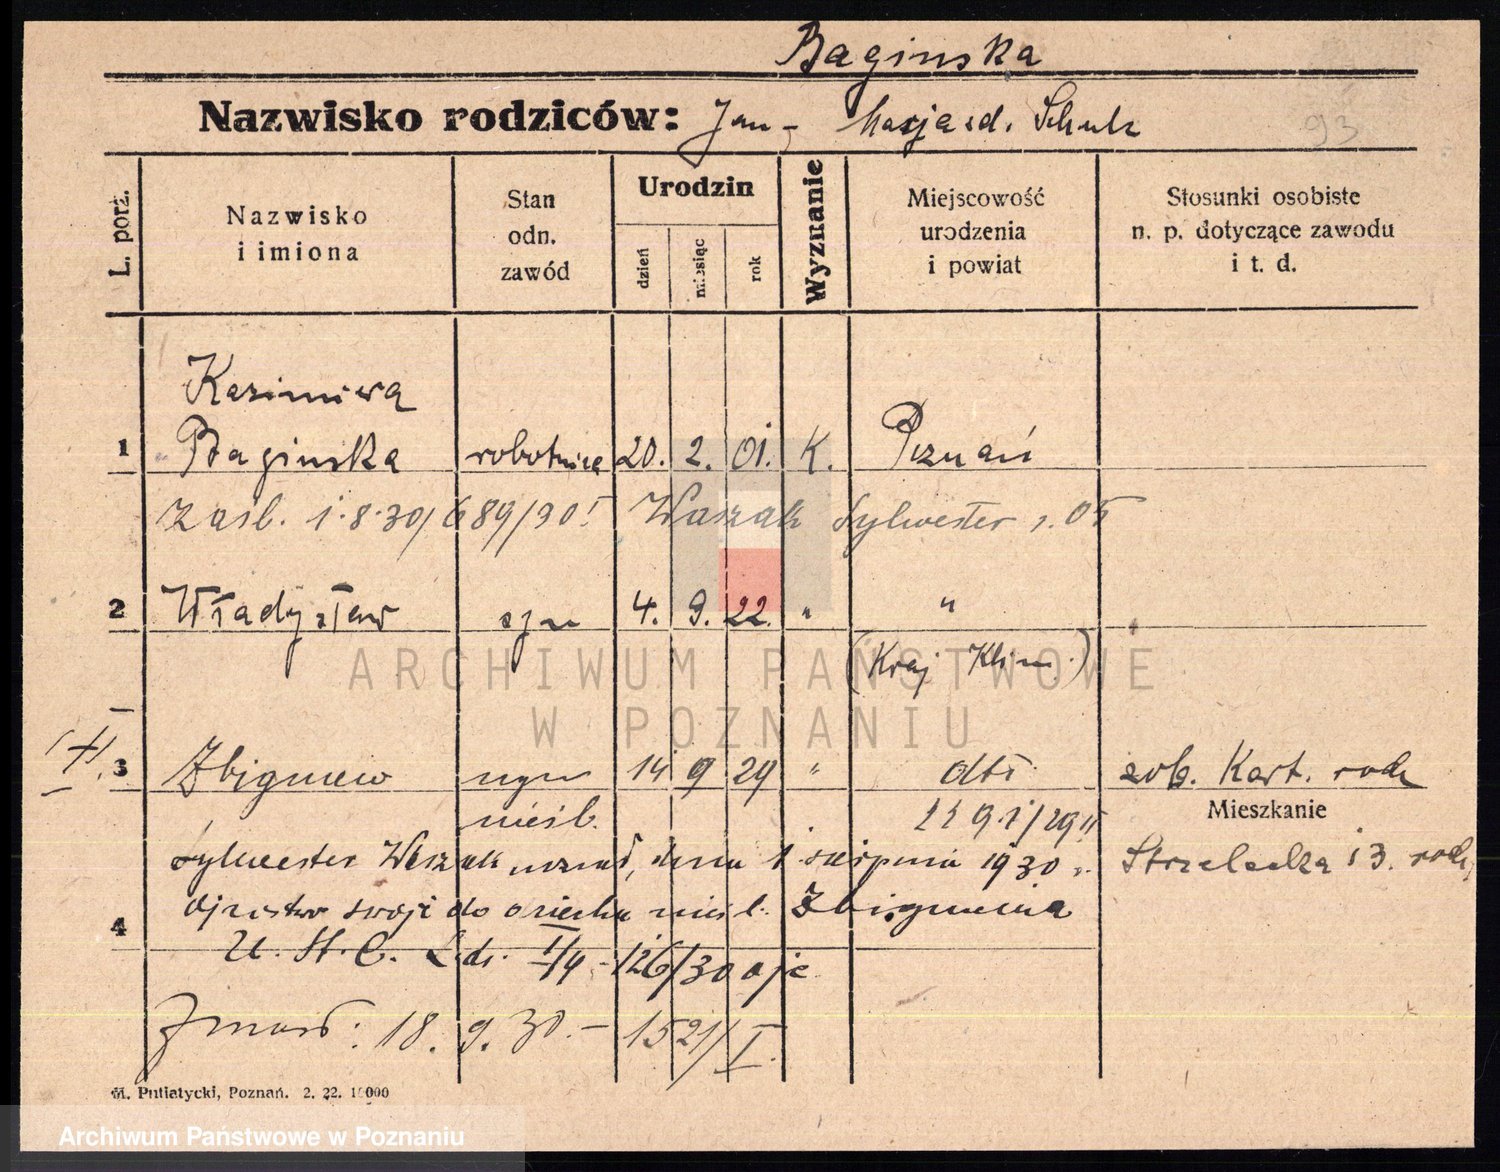 Baginska
Nazwisko rodziców: Jan - Marja zd. Schulz
93
L. porz.
Nazwisko
i imiona
Stan
odn.
zawód
Urodzin
dzień
miesiąc
rok
Wyznanie
Miejscowość
urodzenia
i powiat
Stosunki osobiste
n. p. dotyczące zawodu
i t. d.
Kazimiera
1 Baginska robotnica 20. 2. 01. K. Poznań
zaśl. 1.8.30/689/30 I Waszak Sylwester r. 05
2 Władysław syn 4. 9. 22. " "
(Kraj Klin.)
ARCHIWUM PAŃSTWOWE
W POZNANIU
3 Zbigniew syn 14 9 29 " dtt zob. Kart. rodz
nieśl. Mieszkanie
Sylwester Waszak uznał, dnia 1 sierpnia 1930 r. Strzelecka 13. rodz,
ojcostwo swoje do dziecka nieśl. Zbigniewa
4
U. St. C. L.dz. I/4 - 126/30 ojc
Zmarł: 18. 9. 30. - 1521/I.
M. Putiatycki, Poznań. 2. 22. 10000
Archiwum Państwowe w Poznaniu